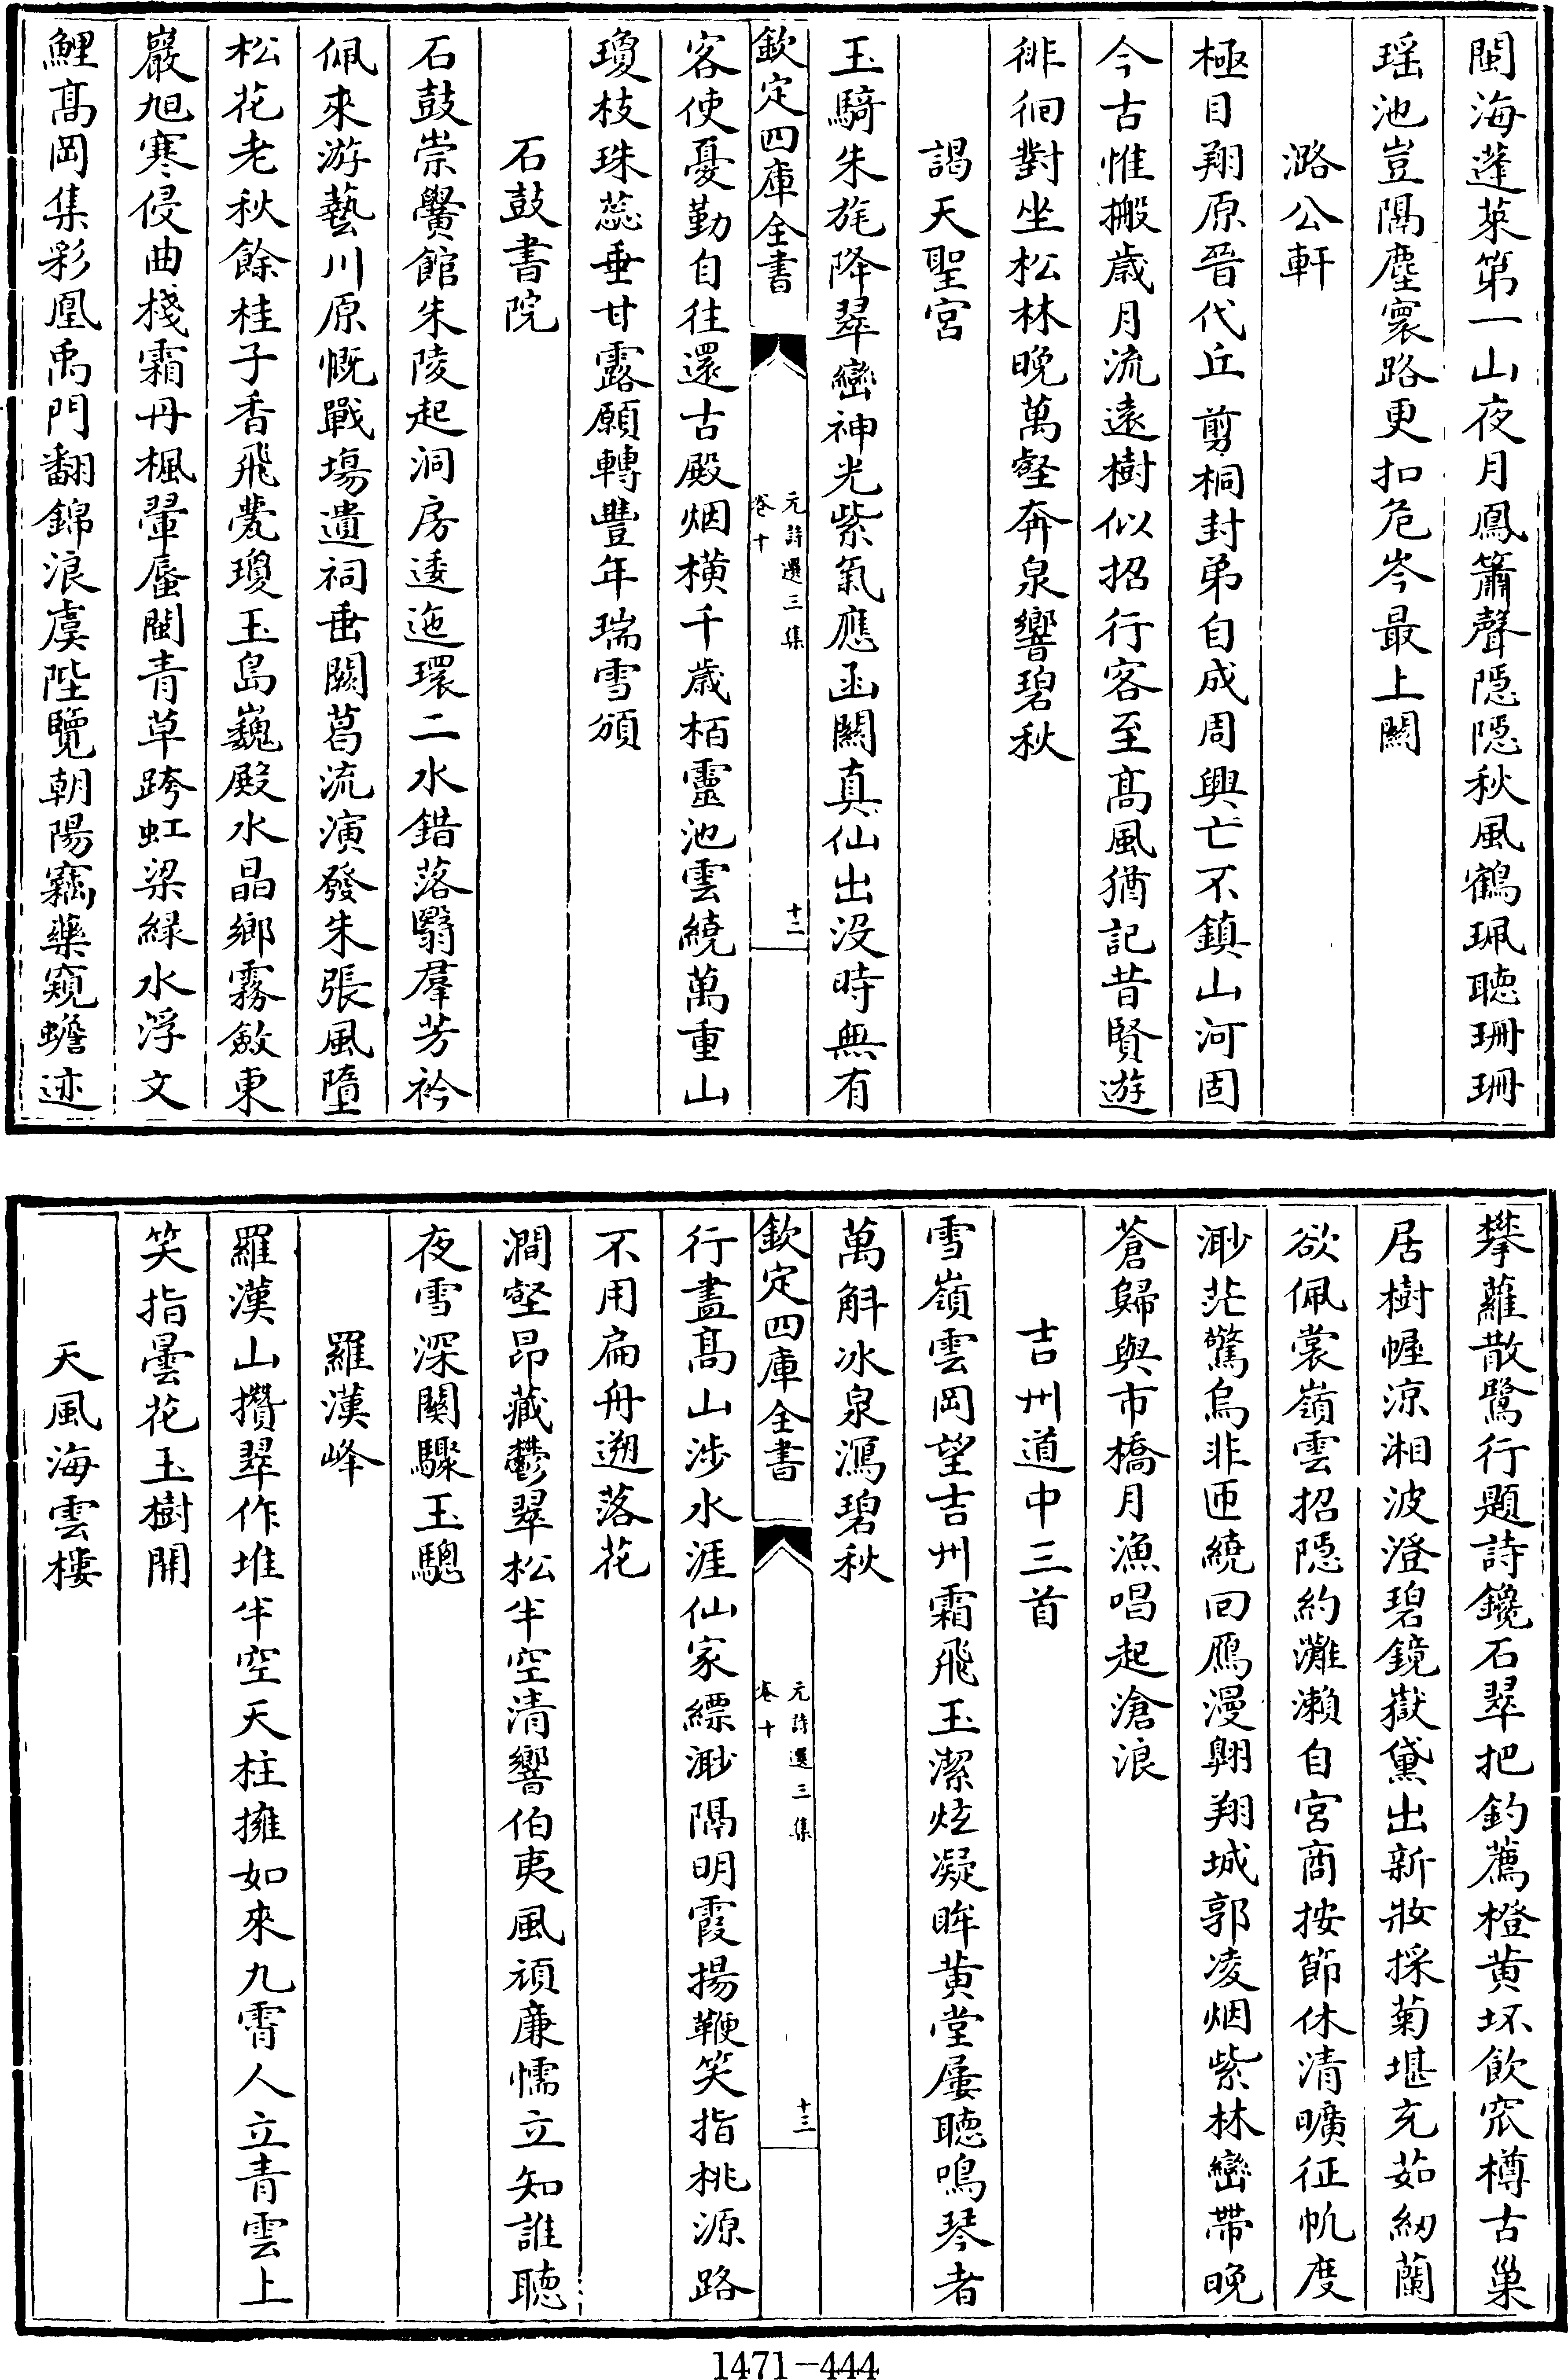 閩海蓬萊第一山夜月鳳簫聲隱隱秋風鶴珮聽珊珊
瑶池豈隔塵寰路更扣危岑最上關
潞公軒
極目翔原晉代丘剪桐封弟自成周興亡不鎮山河固
今古惟搬歳月流遠樹似招行客至髙風猶記昔賢遊
徘徊對坐松林晚萬壑奔泉響碧秋
謁天聖宮
玉騎朱旄降翠巒神光紫氣應函關真仙出没時無有
欽定四庫全書
元詩選三集
卷十
十二
客使憂勤自往還古殿烟横千歳栢靈池雲繞萬重山
瓊枝珠蕊垂甘露願轉豐年瑞雪頒
石鼓書院
石鼓崇黌館朱陵起洞房逶迤環二水錯落翳羣芳衿
佩來游藝川原慨戰塲遺祠垂闕葛流演發朱張風墮
松花老秋餘桂子香飛甍瓊玉島巍殿水晶鄉霧斂東
巖旭寒侵曲棧霜丹楓暈蜃閩青草跨虹梁緑水浮文
鯉髙岡集彩凰禹門翻錦浪虞陛覽朝陽竊藥窺蟾迹
攀蘿散鷺行題詩鑱石翠把釣薦橙黄坏飲窊樽古巢
居樹幄涼湘波澄碧鏡嶽黛出新妝採菊堪充茹紉蘭
欲佩裳嶺雲招隠約灘瀨自宮商按節休清曠征帆度
渺茫驚烏非匝繞回鴈漫翺翔城郭凌烟紫林巒帶晚
蒼歸與市橋月漁唱起滄浪
吉州道中三首
雪嶺雲岡望吉州霜飛玉潔炫凝眸黄堂屢聽鳴琴者
萬斛冰泉瀉碧秋
欽定四庫全書
元詩選三集
卷十
十三
行盡髙山涉水涯仙家縹渺隔明霞揚鞭笑指桃源路
不用扁舟遡落花
澗壑昂藏鬱翠松半空清響伯夷風頑廉懦立知誰聽
夜雪深關驟玉驄
羅漢峰
羅漢山攢翠作堆半空天柱擁如來九霄人立青雲上
笑指曇花玉樹開
天風海雲樓
1471-444